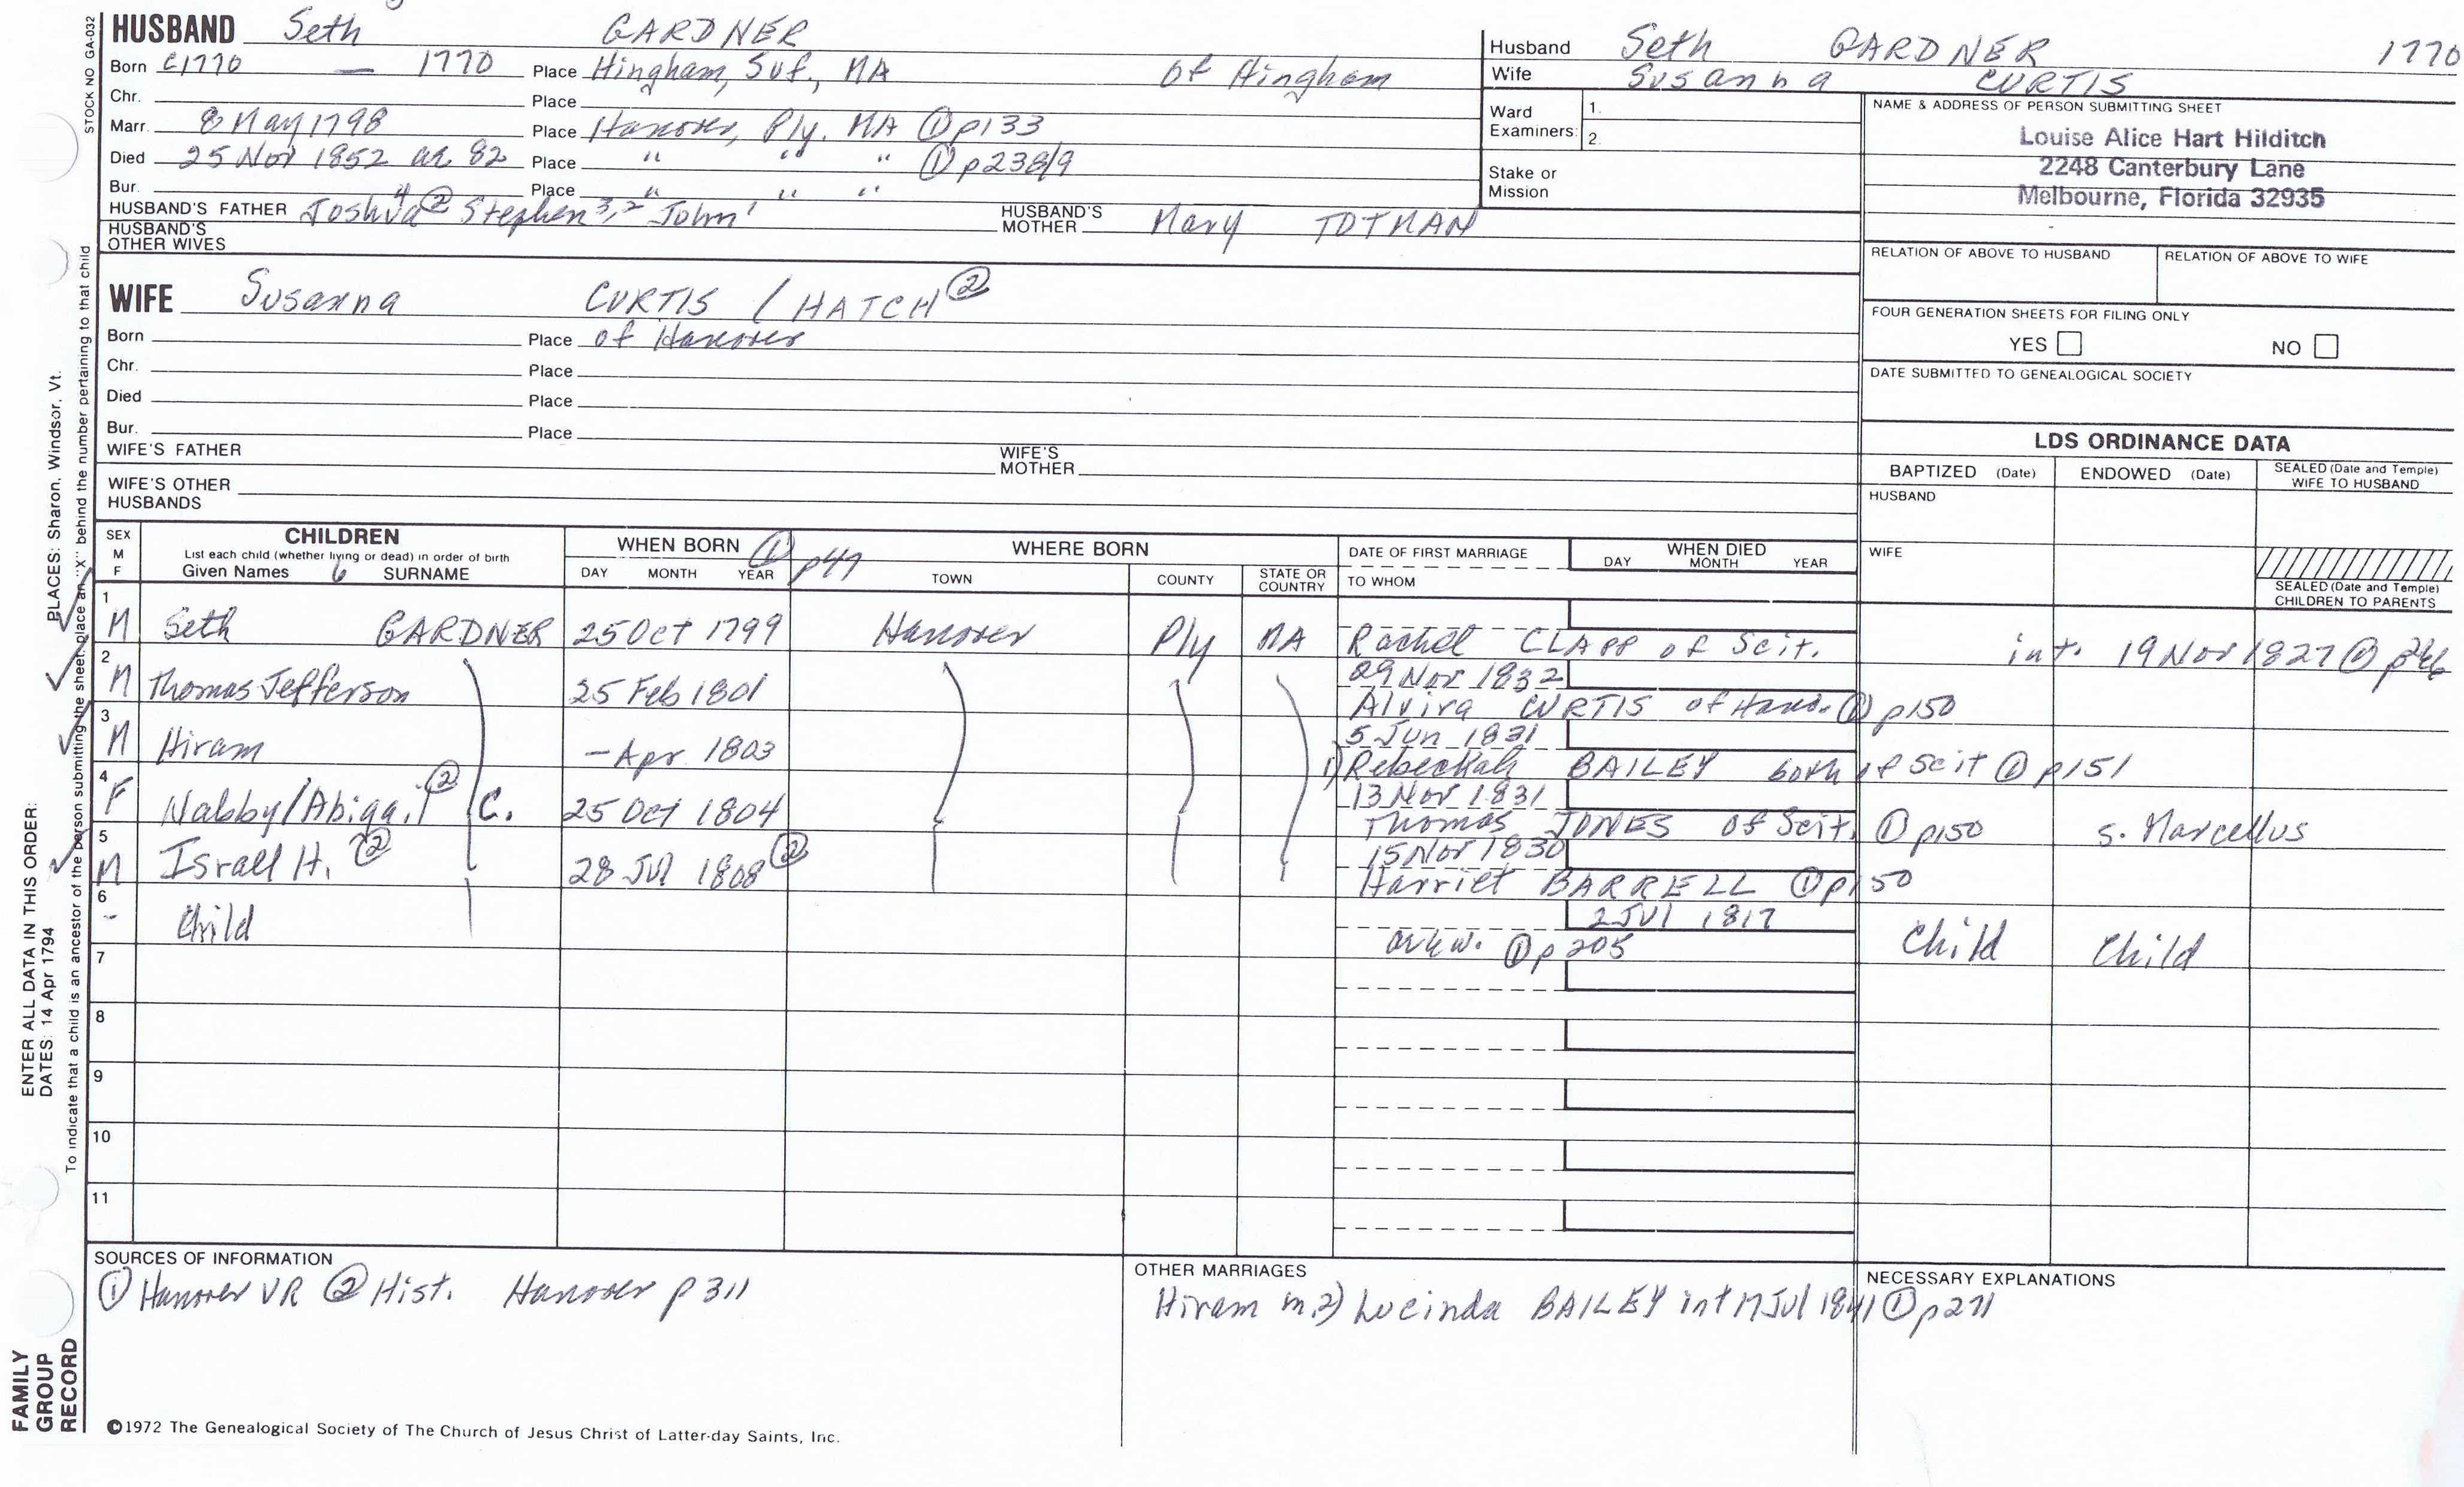 STOCK NO GA-032
HUSBAND Seth GARDNER
Born c1770 — 1770 Place Hingham, Suf., MA of Hingham
Chr. Place
Marr. 8 May 1798 Place Hanover, Ply. MA ① p133
Died 25 Nov 1852 ae. 82 Place " " " ① p238/9
Bur. Place " " "
HUSBAND'S FATHER Joshua⁴ ② Stephen³,² John¹ HUSBAND'S MOTHER Mary TOTMAN
HUSBAND'S OTHER WIVES
WIFE Susanna CURTIS / HATCH ②
Born Place of Hanover
Chr. Place
Died Place
Bur. Place
WIFE'S FATHER WIFE'S MOTHER
WIFE'S OTHER HUSBANDS
Husband Seth GARDNER 1770
Wife Susanna CURTIS
Ward Examiners: 1.
2.
Stake or Mission
NAME & ADDRESS OF PERSON SUBMITTING SHEET
Louise Alice Hart Hilditch
2248 Canterbury Lane
Melbourne, Florida 32935
RELATION OF ABOVE TO HUSBAND RELATION OF ABOVE TO WIFE
FOUR GENERATION SHEETS FOR FILING ONLY
YES NO
DATE SUBMITTED TO GENEALOGICAL SOCIETY
LDS ORDINANCE DATA
BAPTIZED (Date) ENDOWED (Date) SEALED (Date and Temple) WIFE TO HUSBAND
HUSBAND
WIFE
SEALED (Date and Temple) CHILDREN TO PARENTS
SEX M F
CHILDREN
List each child (whether living or dead) in order of birth
Given Names 6 SURNAME
WHEN BORN ① p47
DAY MONTH YEAR
WHERE BORN
TOWN COUNTY STATE OR COUNTRY
DATE OF FIRST MARRIAGE
TO WHOM
WHEN DIED
DAY MONTH YEAR
1 M Seth GARDNER 25 Oct 1799 Hanover Ply MA
Rachel CLAPP of Scit. int. 19 Nov 1827 ① p246
2 M Thomas Jefferson 25 Feb 1801 29 Nov 1832
Alvira CURTIS of Hano. ① p150
3 M Hiram – Apr 1803 5 Jun 1831
1) Rebeckah BAILEY both of Scit ① p151
4 F Nabby/Abigail ② C. 25 Oct 1804 13 Nov 1831
Thomas JONES of Scit. ① p150 s. Marcellus
5 M Israel H. ② 28 Jul 1808 ② 15 Nov 1830
Harriet BARRELL ① p150
6 - Child 2 Jul 1817
① p205 Child Child
7
8
9
10
11
SOURCES OF INFORMATION
① Hanover VR ② Hist. Hanover p311
OTHER MARRIAGES
Hiram m.2) Lucinda BAILEY int 17 Jul 1841 ① p271
NECESSARY EXPLANATIONS
©1972 The Genealogical Society of The Church of Jesus Christ of Latter-day Saints, Inc.
FAMILY GROUP RECORD
ENTER ALL DATA IN THIS ORDER:
DATES: 14 Apr 1794 PLACES: Sharon, Windsor, Vt.
To indicate that a child is an ancestor of the person submitting the sheet, place an "X" behind the number pertaining to that child